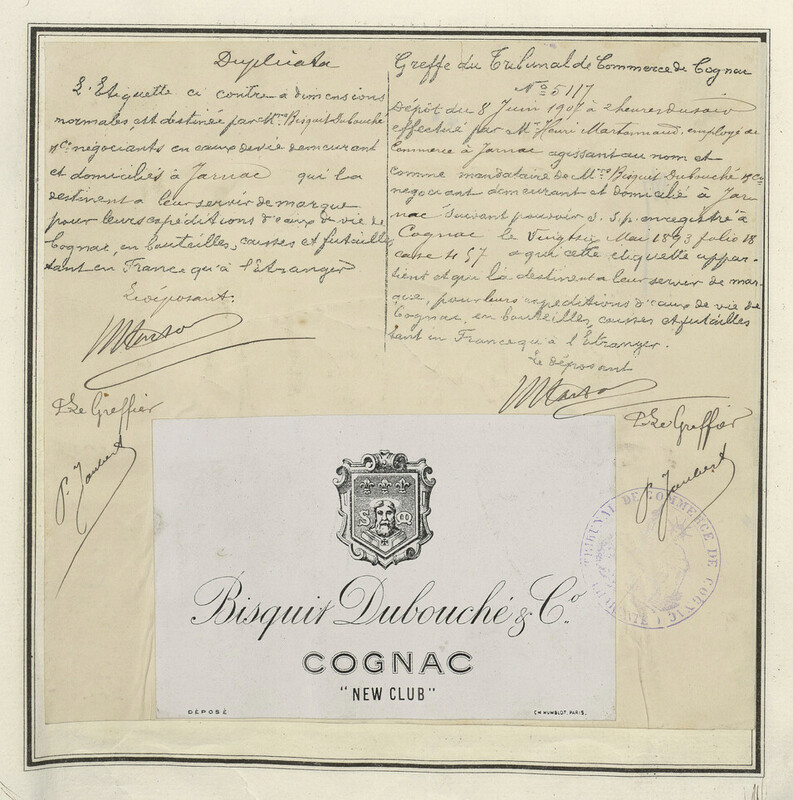 Duplicata
L'Etiquette ci contre à dimensions
normales, est destinée par Mrs Bisquit Dubouché
& Cie négociants en eaux de vie demeurant
et domiciliés à Jarnac qui la
destinent à leur servir de marque
pour leurs expéditions d'eaux de vie de
Cognac, en bouteilles, caisses et futailles
tant en France qu'à l'Etranger
Le déposant.
P. Le Greffier
P. Jaubert
Greffe du Tribunal de Commerce de Cognac
No 5117
Dépôt du 8 Juin 1907 à 2 heures du soir
effectué par Mr Henri employé de
Commerce à Jarnac agissant au nom et
comme mandataire de Mrs Bisquit Dubouché & Cie
négociant demeurant et domicilié à Jar
nac suivant pouvoir s. s. p. enregistré à
Cognac le Vingt six Mai 1893 folio 18
case 457 à qui cette étiquette appar-
tient et qui la destinent à leur servir de mar-
que, pour leurs expéditions d'eaux de vie de
Cognac, en bouteilles, caisses et futailles
tant en France qu'à l'Etranger.
Le déposant
P. Le Greffier
P. Jaubert
TRIBUNAL DE COMMERCE DE COGNAC
CHARENTE
S M
Bisquit Dubouché & Co.
COGNAC
"NEW CLUB"
DÉPOSÉ
CH. HUMBLOT, PARIS.